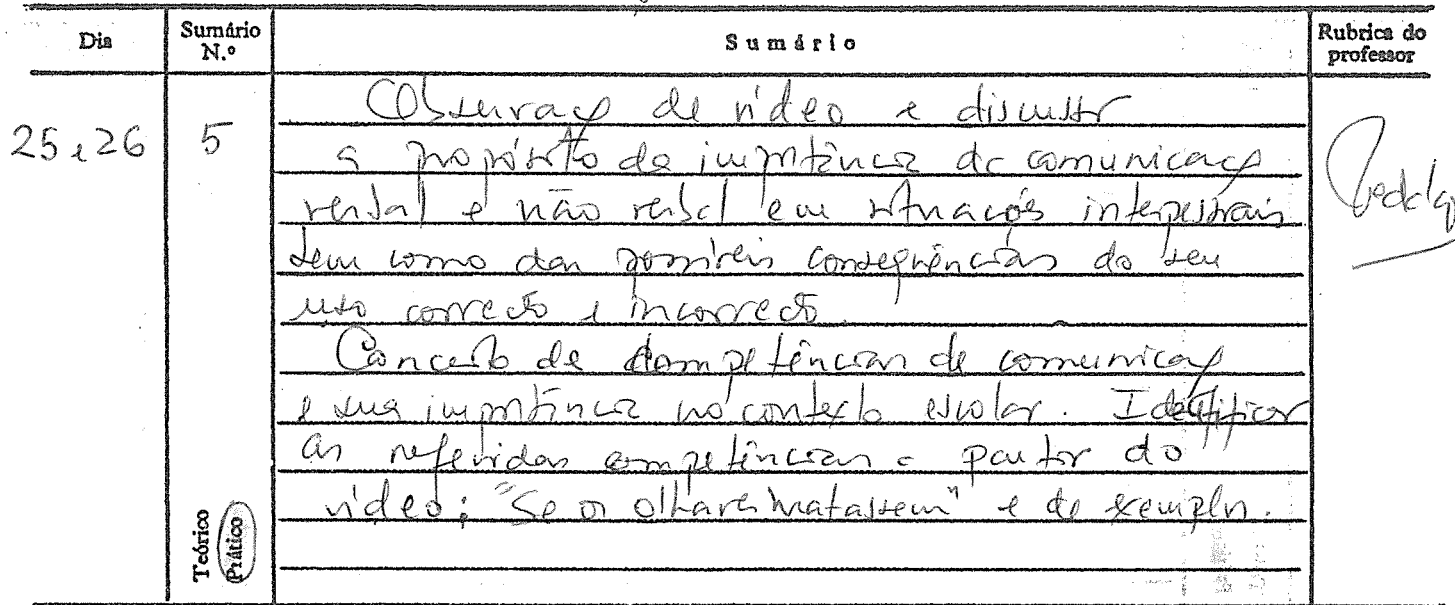 Dia
Sumário N.º
Sumário
Rubrica do professor
25 e 26
5
Observação de vídeo e discussão
a propósito da importância da comunicação
verbal e não verbal em situações interpessoais
bem como das possíveis consequências do seu
uso correcto e incorrecto.
Conceito de competências de comunicação
e sua importância no contexto escolar. Identificar
as referidas competências a partir do
vídeo: "Se os olhares matassem" e de exemplos.
Teórico
Prático